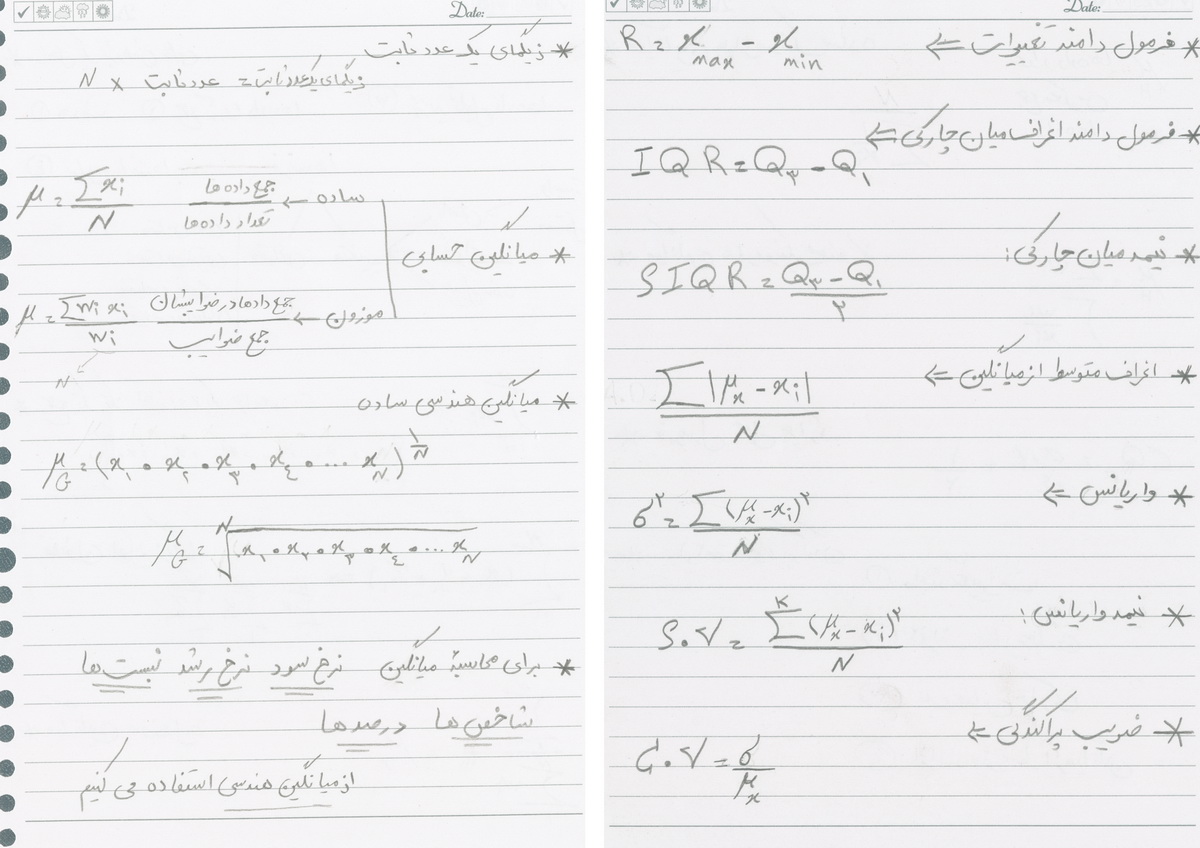 Date:
* زیگمای یک عدد ثابت
زیگمای یک عدد ثابت = عدد ثابت × N
ساده ← جمع داده ها / تعداد داده ها    μ = Σxi / N
* میانگین حسابی
موزون ← جمع داده ها در ضرایبشان / جمع ضرایب    μ = Σwi xi / wi
N
* میانگین هندسی ساده
μG = (x₁ • x₂ • x₃ • x₄ • ... xN)^(1/N)
μG = ᴺ√(x₁ • x₂ • x₃ • x₄ • ... xN)
* برای محاسبهٔ میانگین نرخ سود نرخ رشد نسبت ها
شاخص ها درصدها
از میانگین هندسی استفاده می کنیم
Date:
* فرمول دامنه تغییرات ⇐ R = x max - x min
* فرمول دامنه انحراف میان چارکی ⇐
IQR = Q۳ - Q۱
* نیمه میان چارکی:
SIQR = (Q۳ - Q۱) / ۲
* انحراف متوسط از میانگین ⇐
Σ|μx - xi| / N
* واریانس ⇐
σ² = Σ(μx - xi)² / N
* نیمه واریانس:
S.V = Σᴷ(μx - xi)² / N
* ضریب پراکندگی ⇐
C.V = σ / μx